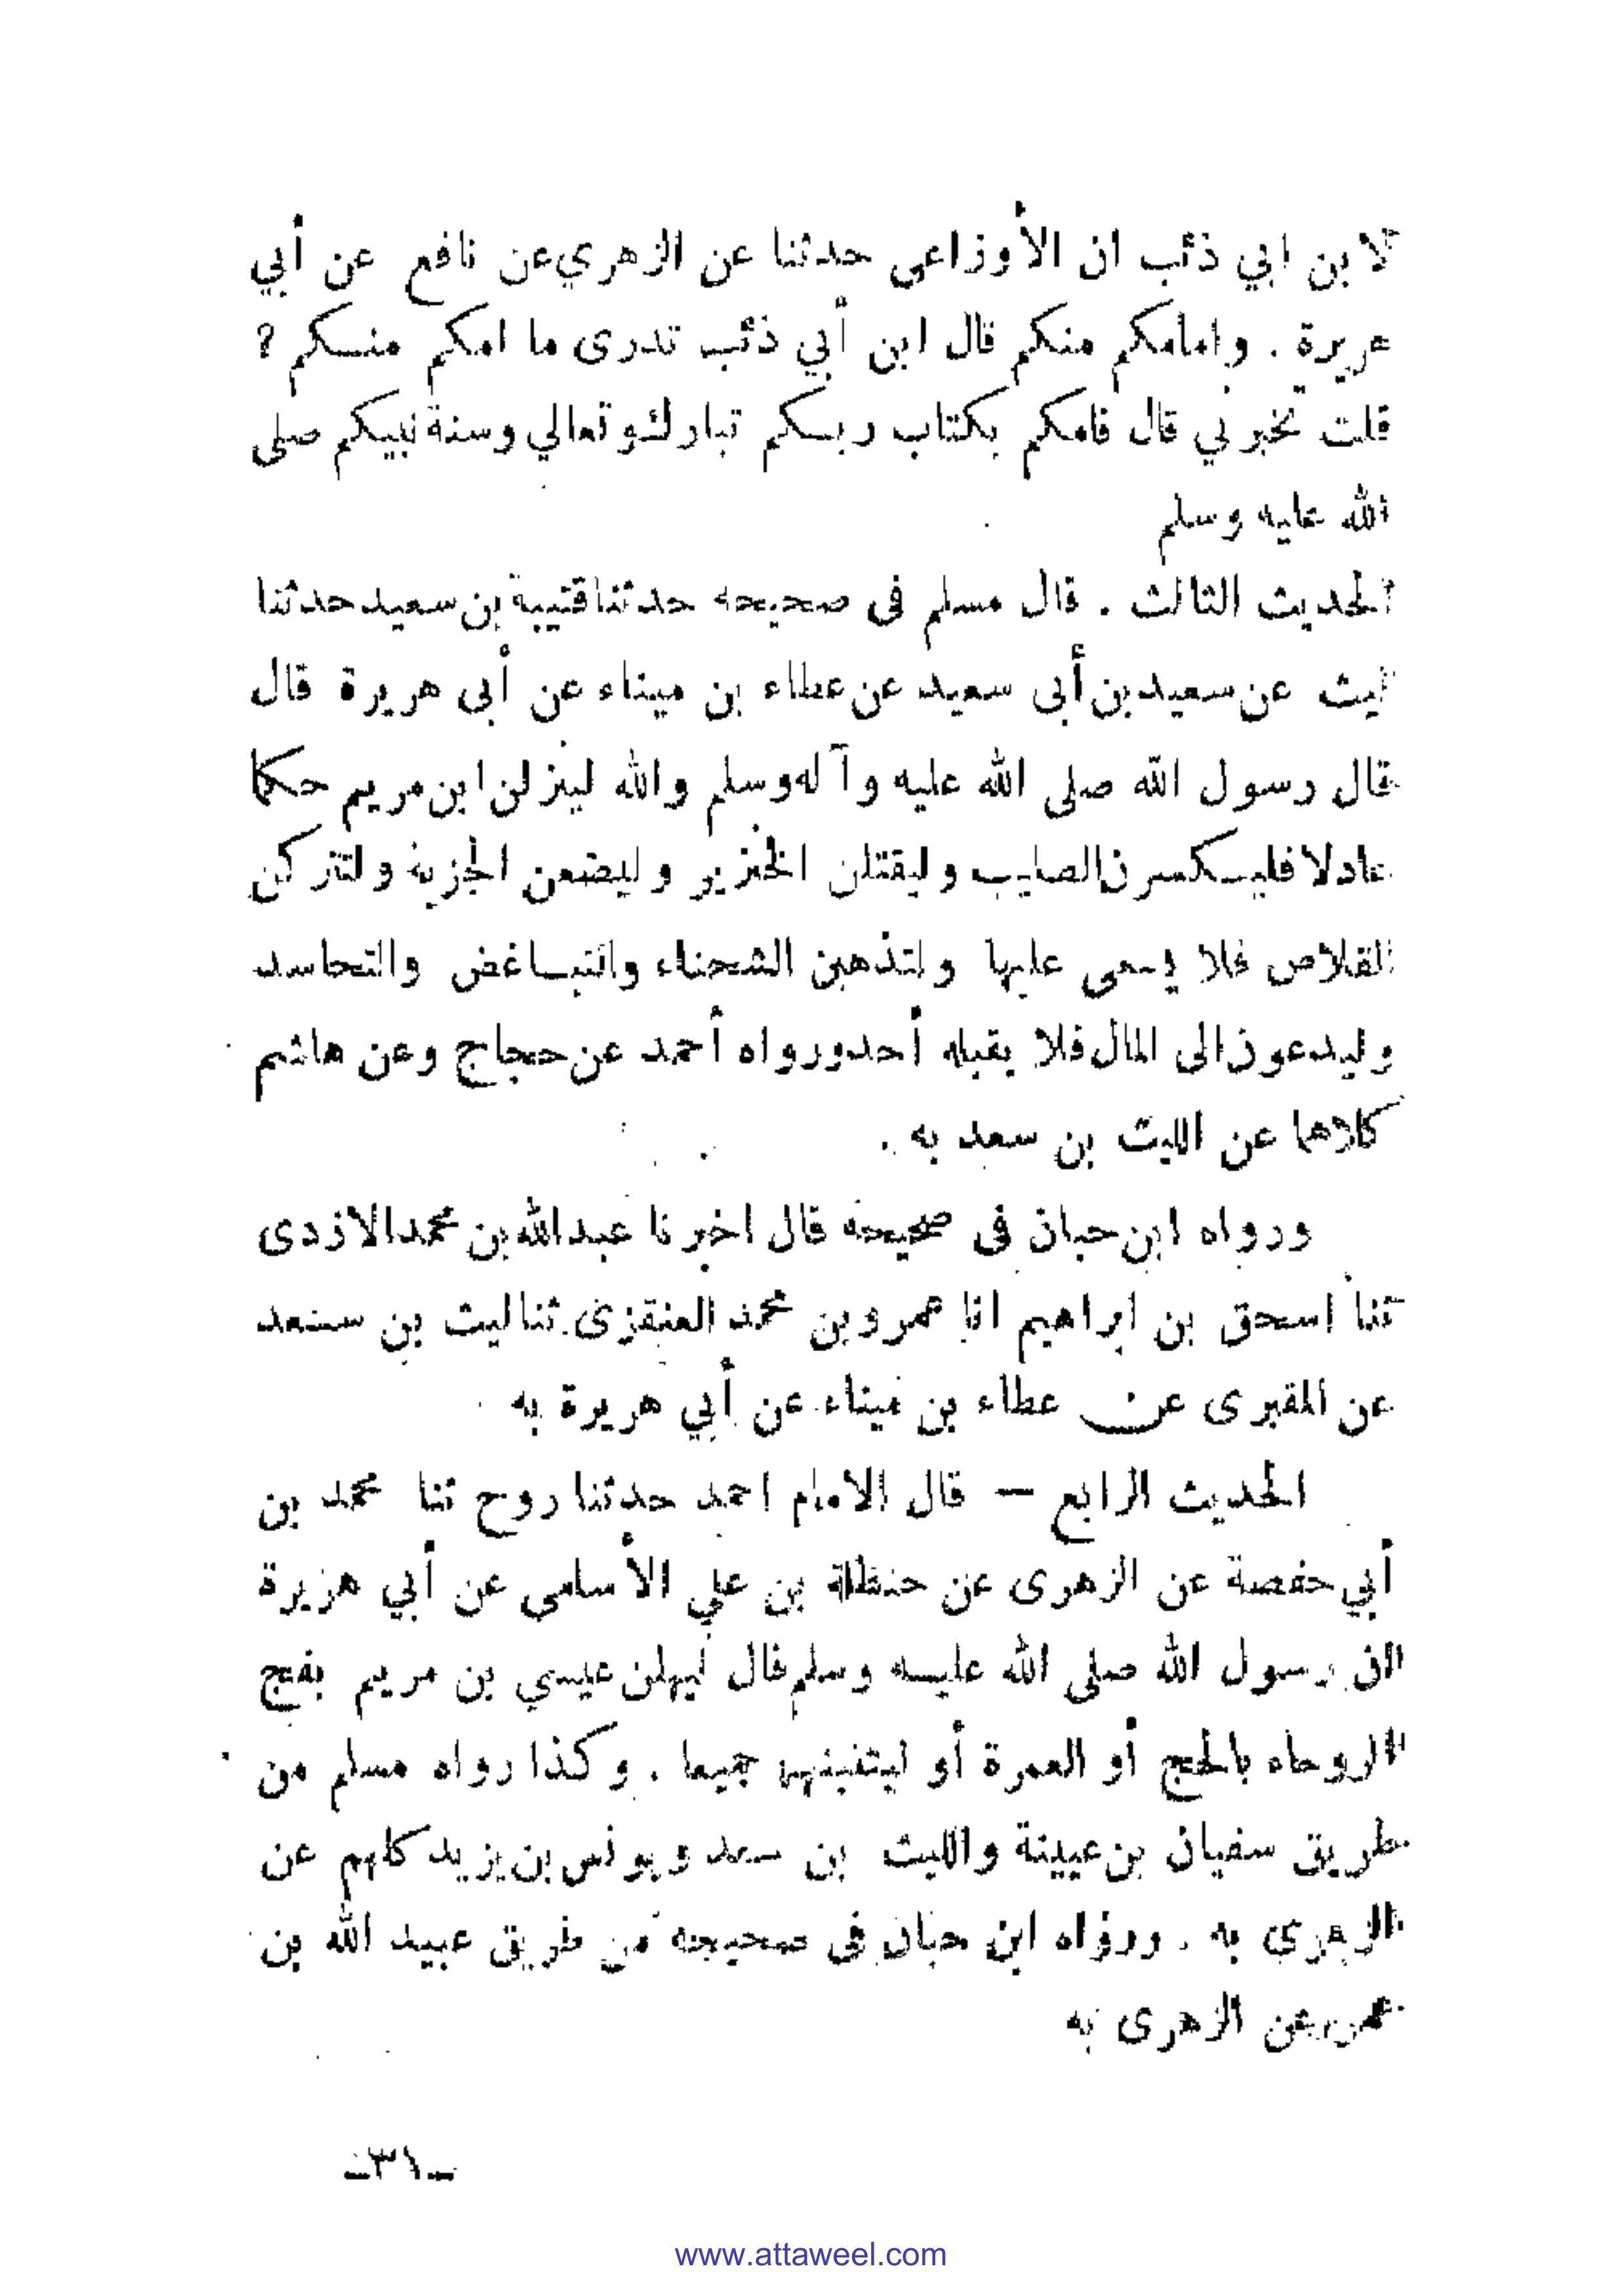 لابن ابي ذئب ان الأوزاعى حدثنا عن الزهري عن نافع عن أبي
هريرة . وامامكم منكم قال ابن أبي ذئب تدرى ما امكم منكم ؟
قلت تخبرني قال فامكم بكتاب ربكم تبارك وتعالي وسنة نبيكم صلى
الله عليه وسلم
الحديث الثالث . قال مسلم فى صحيحه حدثنا قتيبة بن سعيد حدثنا
ليث عن سعيد بن أبى سعيد عن عطاء بن ميناء عن أبى هريرة قال
قال رسول الله صلى الله عليه وآله وسلم والله لينزلن ابن مريم حكما
عادلا فليكسرن الصليب وليقتلن الخنزير وليضعن الجزية ولتتركن
القلاص فلا يسعى عليها ولتذهبن الشحناء والتباغض والتحاسد
وليدعون الى المال فلا يقبله أحد ورواه أحمد عن حجاج وعن هاشم
كلاهما عن الليث بن سعد به .
ورواه ابن حبان فى صحيحه قال اخبرنا عبد الله بن محمد الازدى
ثنا اسحق بن ابراهيم انا عمرو بن محمد العنقزى ثنا ليث بن سعد
عن المقبرى عن عطاء بن ميناء عن أبي هريرة به
الحديث الرابع — قال الامام احمد حدثنا روح ثنا محمد بن
أبي حفصة عن الزهرى عن حنظلة بن علي الأسلمى عن أبي هريرة
ان رسول الله صلى الله عليه وسلم قال ليهلن عيسي بن مريم بفج
الروحاء بالحج أو العمرة أو ليثنينهما جميعا . وكذا رواه مسلم من
طريق سفيان بن عيينة والليث بن سعد ويونس بن يزيد كلهم عن
الزهري به . ورواه ابن حبان فى صحيحه من طريق عبيد الله بن
عمر عن الزهرى به
ـ٣١ـ
www.attaweel.com